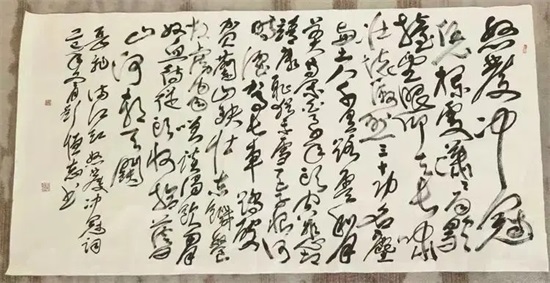 怒發冲冠
憑欄處瀟瀟雨歇
抬望眼仰天長嘯
壯懷激烈三十功名塵
與土八千里路雲和月
莫等閑白了少年頭空悲切
靖康恥猶未雪臣子恨何
時滅駕長車踏破
賀蘭山缺壯志饑餐
胡虜肉笑談渴飲匈
奴血待從頭收拾舊
山河朝天闕
岳飛滿江紅怒發冲冠詞